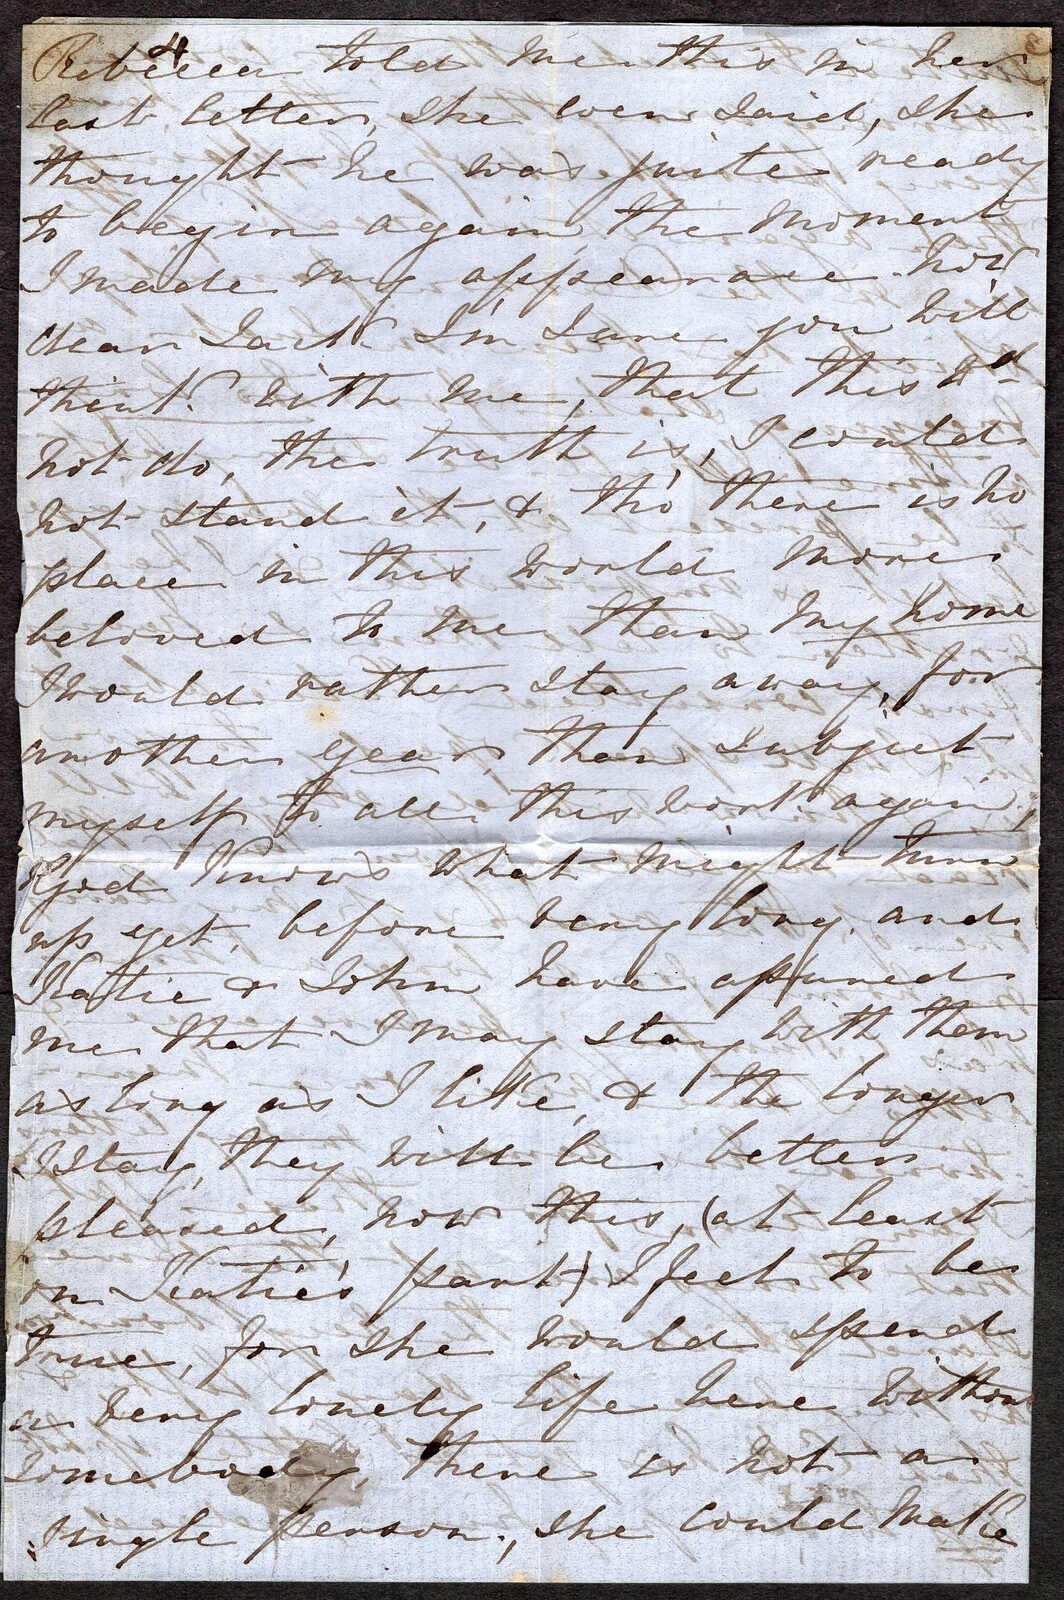 4
Rebecca told me this in her
last letter, she even said, she
thought he was quite ready
to begin again, the moment
I made my appearance. now
dear Jack I'm sure you will
think with me, that this wd
not do, the truth is, I could
not stand it, & tho' there is no
place in this world more
beloved to me than my home
I would rather stay away, for
another year, than subject
myself to all this work again,
God knows what might turn
up yet, before very long, and
Katie & John have assured
me that I may stay with them
as long as I like, & the longer
I stay, they will be better
pleased, now this, (at least
on Katie's part) I feel to be
true, for she would spend
a very lonely life here without
somebody, there is not a
single person, she could make